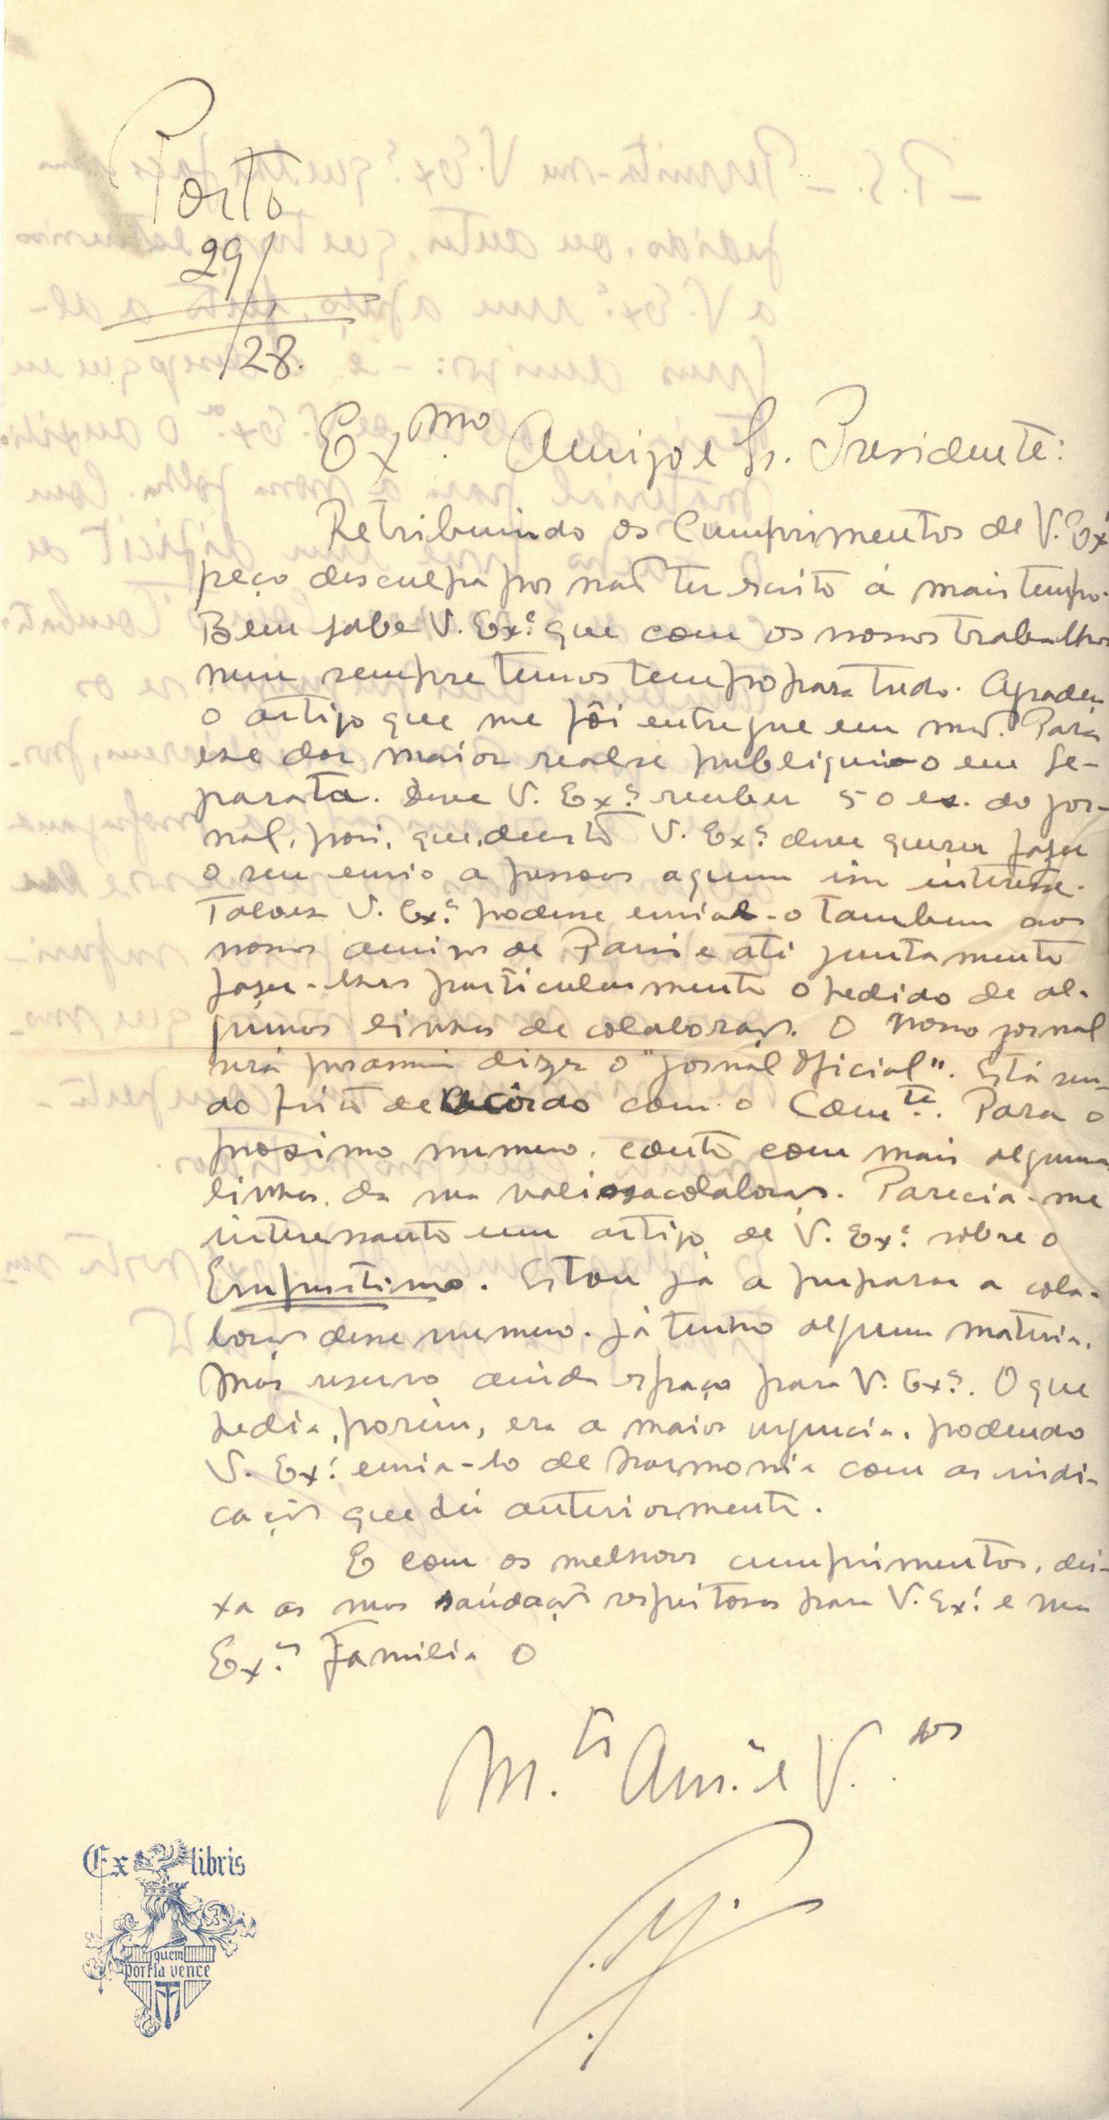 Porto
29/
1
/28.
Ex.mo Amigo e Sr. Presidente:
Retribuindo os Cumprimentos de V. Exª
peço desculpa por não ter escrito á mais tempo.
Bem sabe V. Exª que com os nossos trabalhos
nem sempre temos tempo para tudo. Agradeço
o artigo que me fôi entregue em mão. Para
ese dar maior realse publiquei-o em Se-
parata. Deve V. Exª receber 50 ex. do jor-
nal, pois, que, decerto V. Exª deve querer fazer
o seu envio a pessoas a quem isso interesse.
Talvez V. Exª podesse envial-o tambem aos
nossos amigos de Paris e até juntamente
fazer-lhes particularmente o pedido de al-
gumas linhas de colaboração. O nosso jornal
será por assim dizer o "jornal Oficial". Está sen-
do feito de acôrdo com o Com.te. Para o
proximo numero, conto com mais algumas
linhas da sua valiosa colaboração. Parecia-me
interessante um artigo de V. Exª sôbre o
. Estou já a preparar a cola-
boração desse numero. Já tenho algum materia.
Mas reservo ainda espaço para V. Exª. O que
pedia, porém, era a maior urgencia, podendo
V. Exª envia-lo de harmonia com as indi-
cações que dei anteriormente.
E com os melhores cumprimentos, dei-
xa as suas saüdações respeitosas para V. Exª e sua
Exª Familia o
M.to Am.º e V.dor
Ex libris
quem
porfia vence